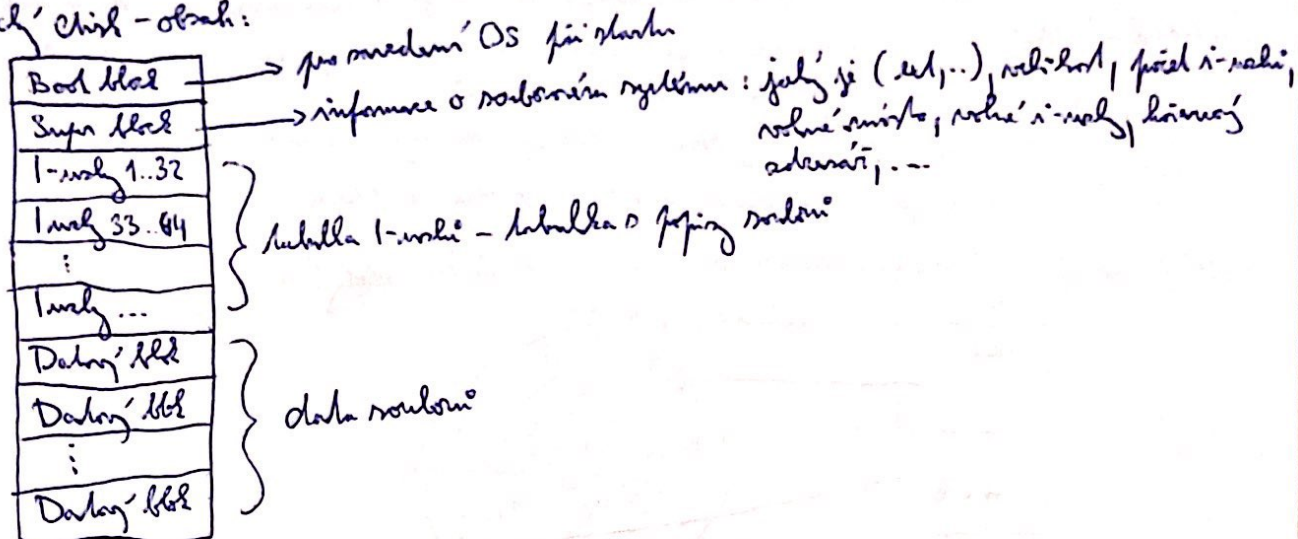 disk - obsah:
Boot block
pro zavedení OS při startu
Super block
informace o souborovém systému: jaký je (ext,..), velikost, počet i-uzlů,
volné místo, volné i-uzly, kořenový
adresář,...
I-uzly 1..32
I uzly 33..64
tabulka I-uzlů - tabulka s popisy souborů
⋮
I uzly ...
Datový blok
Datový blok
data souborů
⋮
Datový blok